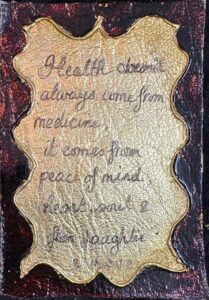 Health doesn't
always come from
medicine
it comes from
peace of mind
heart, soul &
from laughter